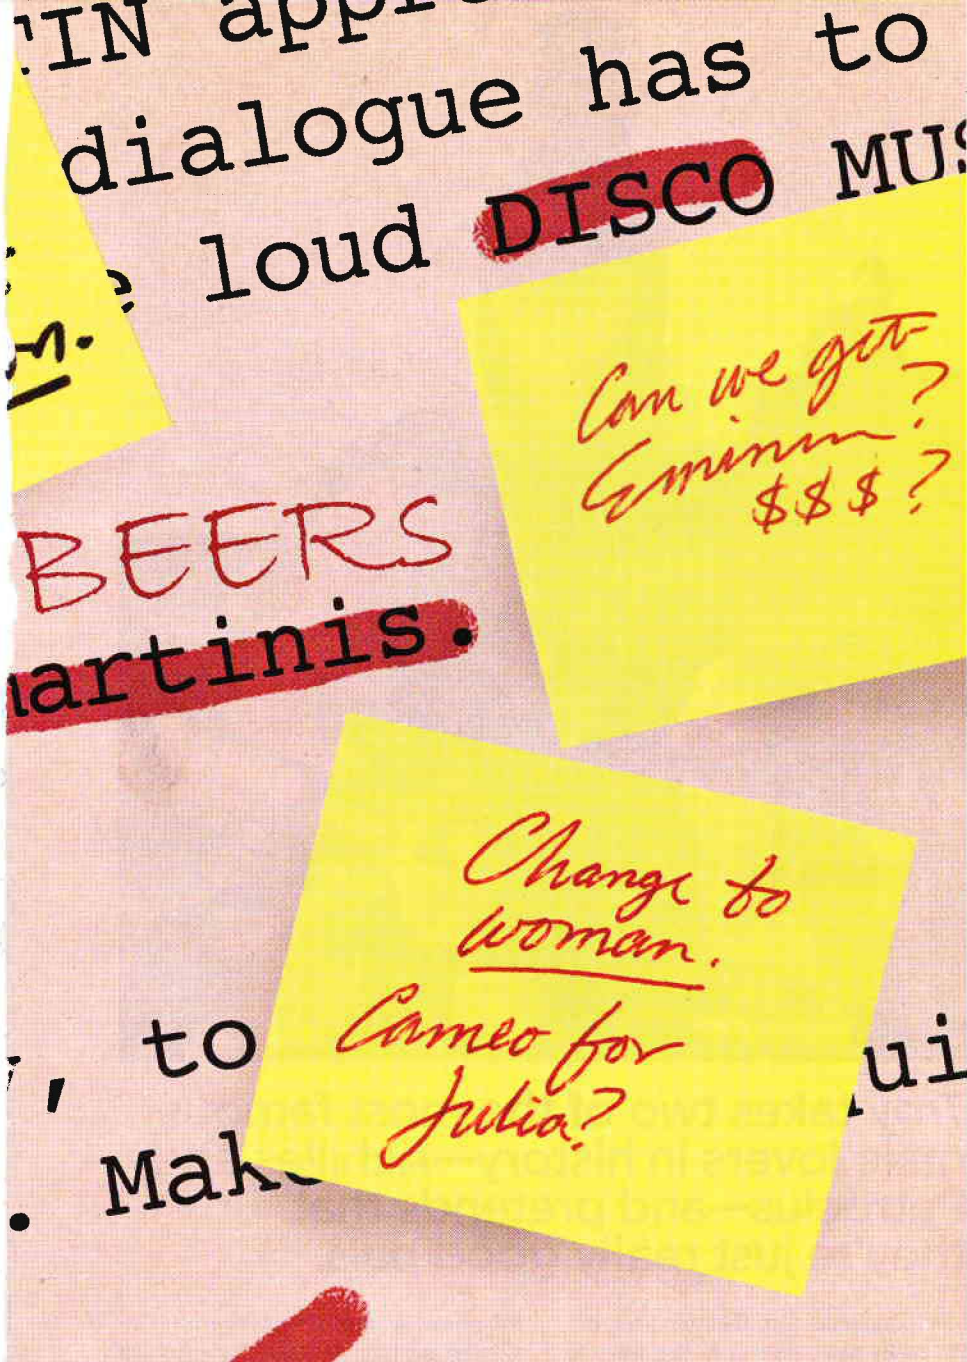 'TIN appr
dialogue has to
e loud DISCO MUS
Can we get
Eminem?
$$$?
BEERS
artinis.
Change to
woman.
Cameo for
Julia?
, to
ui
. Make